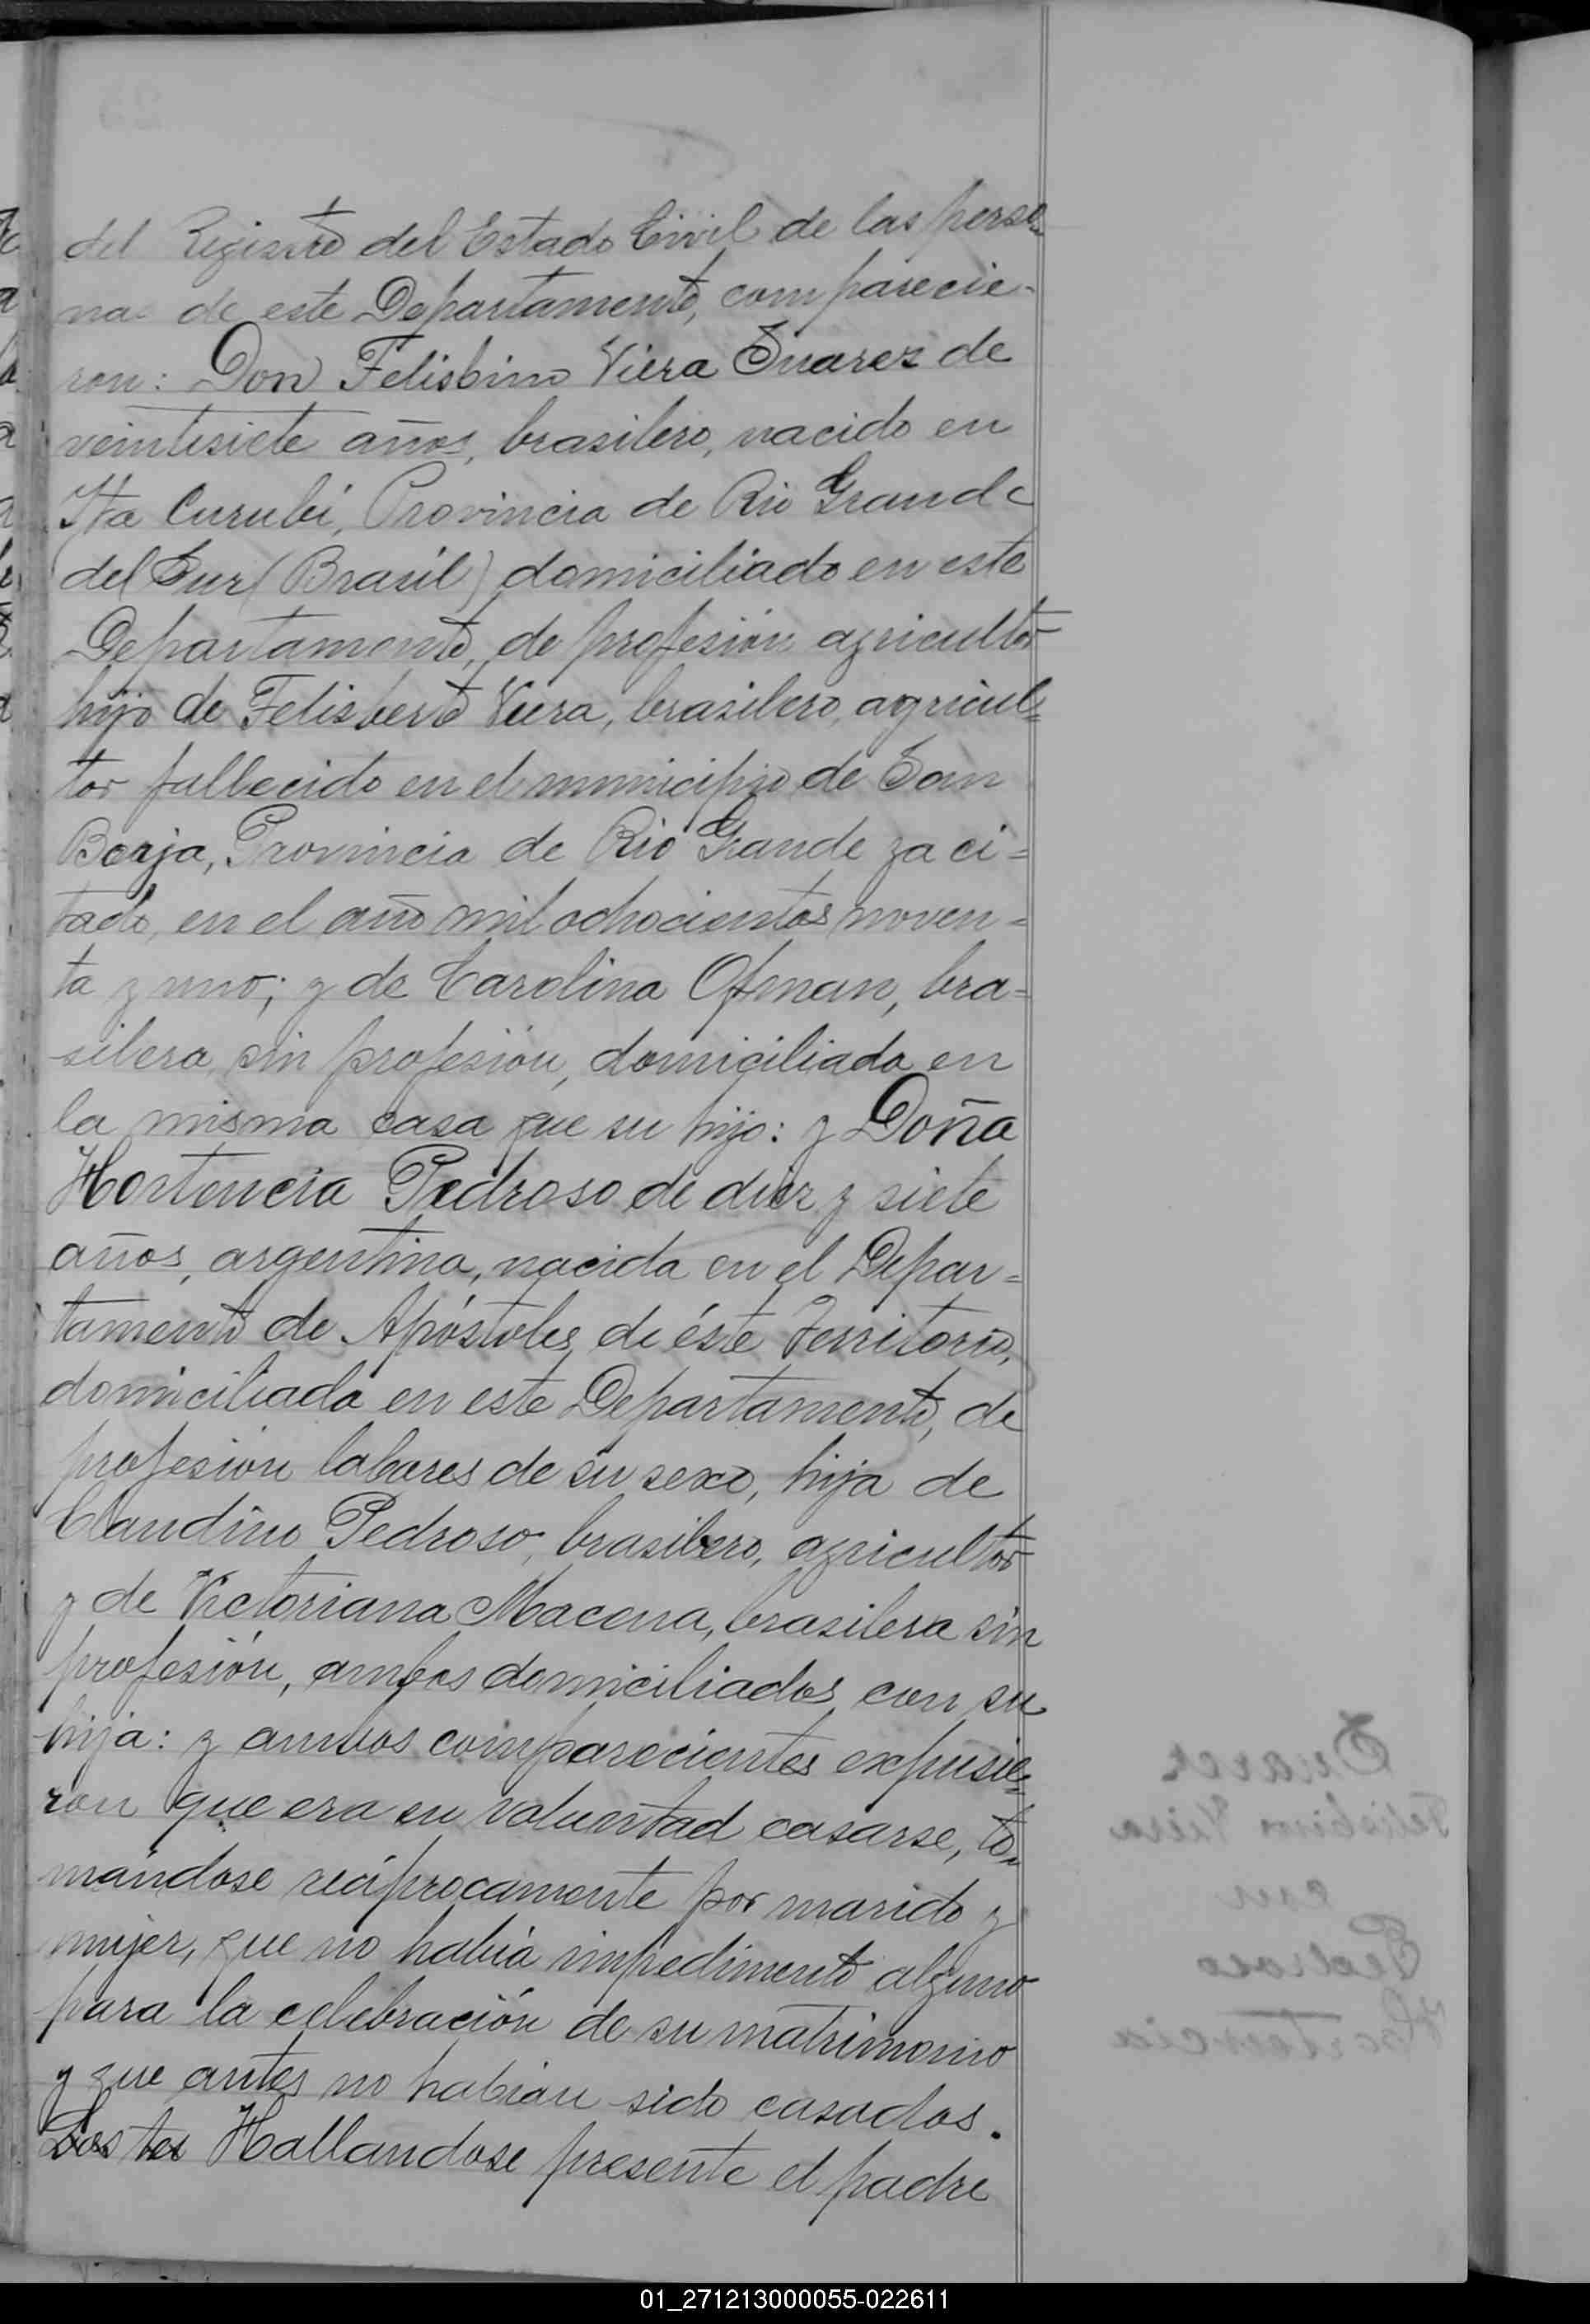 del Registro del Estado Civil de las perso-
nas de este Departamento, comparecie-
ron: Don Felisbino Viera Suarez de
veintisiete años, brasilero, nacido en
Ita Curubí, Provincia de Rio Grande
del Sur (Brasil) domiciliado en este
Departamento, de profesión agricultor
hijo de Felisberto Viera, brasilero, agricul=
tor fallecido en el municipio de San
Borja, Provincia de Rio Grande ya ci=
tado, en el año mil ochocientos noven=
ta y uno; y de Carolina Ofman, bra=
silera, sin profesión, domiciliada en
la misma casa que su hijo: y Doña
Hortencia Pedroso de diez y siete
años, argentina, nacida en el Depar=
tamento de Apóstoles, de éste Territorio,
domiciliada en este Departamento, de
profesión labores de su sexo, hija de
Claudino Pedroso, brasilero, agricultor
y de Victoriana Macena, brasilera sin
profesión, ambos domiciliados con su
hija: y ambos comparecientes expusie=
ron que era su voluntad casarse, to=
mándose recíprocamente por marido y
mujer, que no había impedimento alguno
para la celebración de su matrimonio
y que antes no habían sido casados.
Los tes Hallandose presente el padre
Suarez
Felisbino Viera
con
Pedroso
Hortencia
01_271213000055-022611